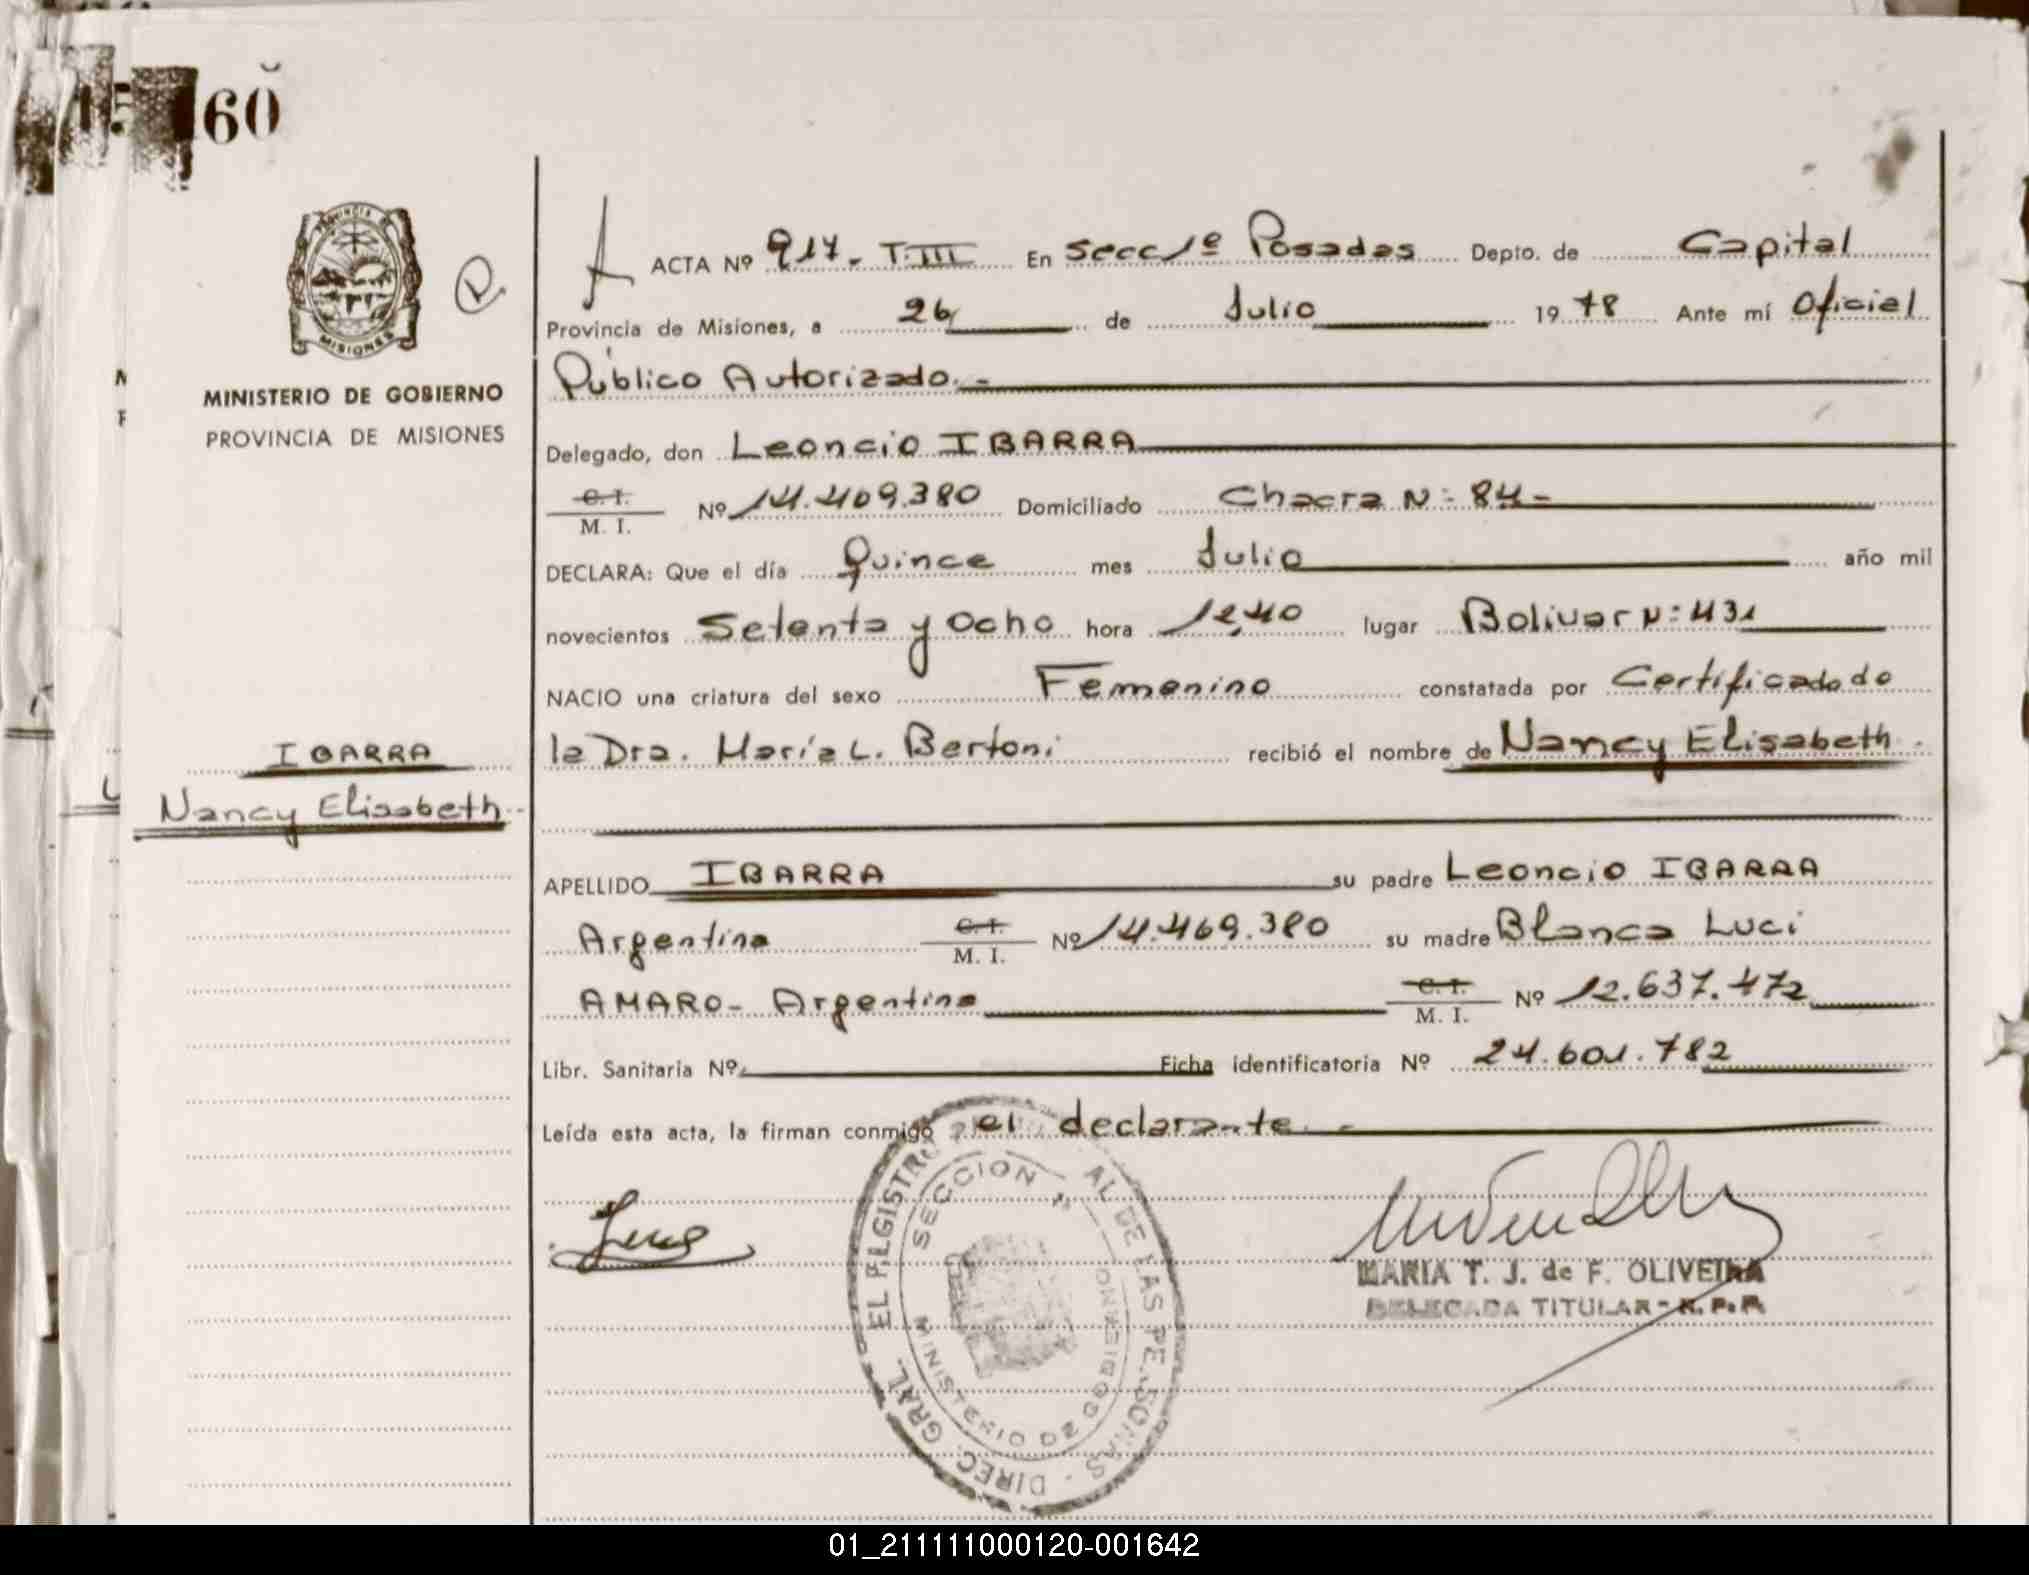 60
PROVINCIA DE
MISIONES
MINISTERIO DE GOBIERNO
PROVINCIA DE MISIONES
IBARRA
Nancy Elisabeth
ACTA Nº 917 - T.III En Secc 1ª Posadas Depto. de Capital
Provincia de Misiones, a 26 de Julio 1978 Ante mí Oficial
Público Autorizado.-
Delegado, don Leoncio IBARRA
C.I. M. I. Nº 14.469.380 Domiciliado Chacra N: 84-
DECLARA: Que el día Quince mes Julio año mil
novecientos Setenta y Ocho hora 12,40 lugar Bolivar N: 431
NACIO una criatura del sexo Femenino constatada por Certificado de
la Dra. María L. Bertoni recibió el nombre de Nancy Elisabeth.
APELLIDO IBARRA su padre Leoncio IBARRA
Argentina C.I. M. I. Nº 14.469.380 su madre Blanca Luci
AMARO- Argentina C.I. M. I. Nº 12.637.472
Libr. Sanitaria Nº Ficha identificatoria Nº 24.601.782
Leída esta acta, la firman conmigo el declarante.-
SECCION
MINISTERIO DE GOBIERNO
MARIA T. J. de F. OLIVEIRA
DELEGADA TITULAR - R. P. P.
01_211111000120-001642